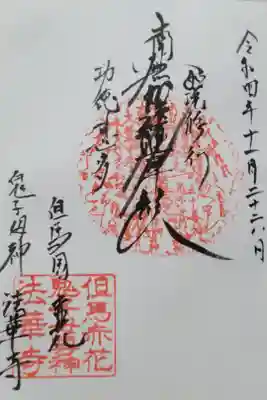 令和四年十一月二十六日
如説修行
南無妙法蓮華経
功徳甚多
但馬国赤花
鬼子母神 法華寺
但馬赤花
鬼子母神
法華寺